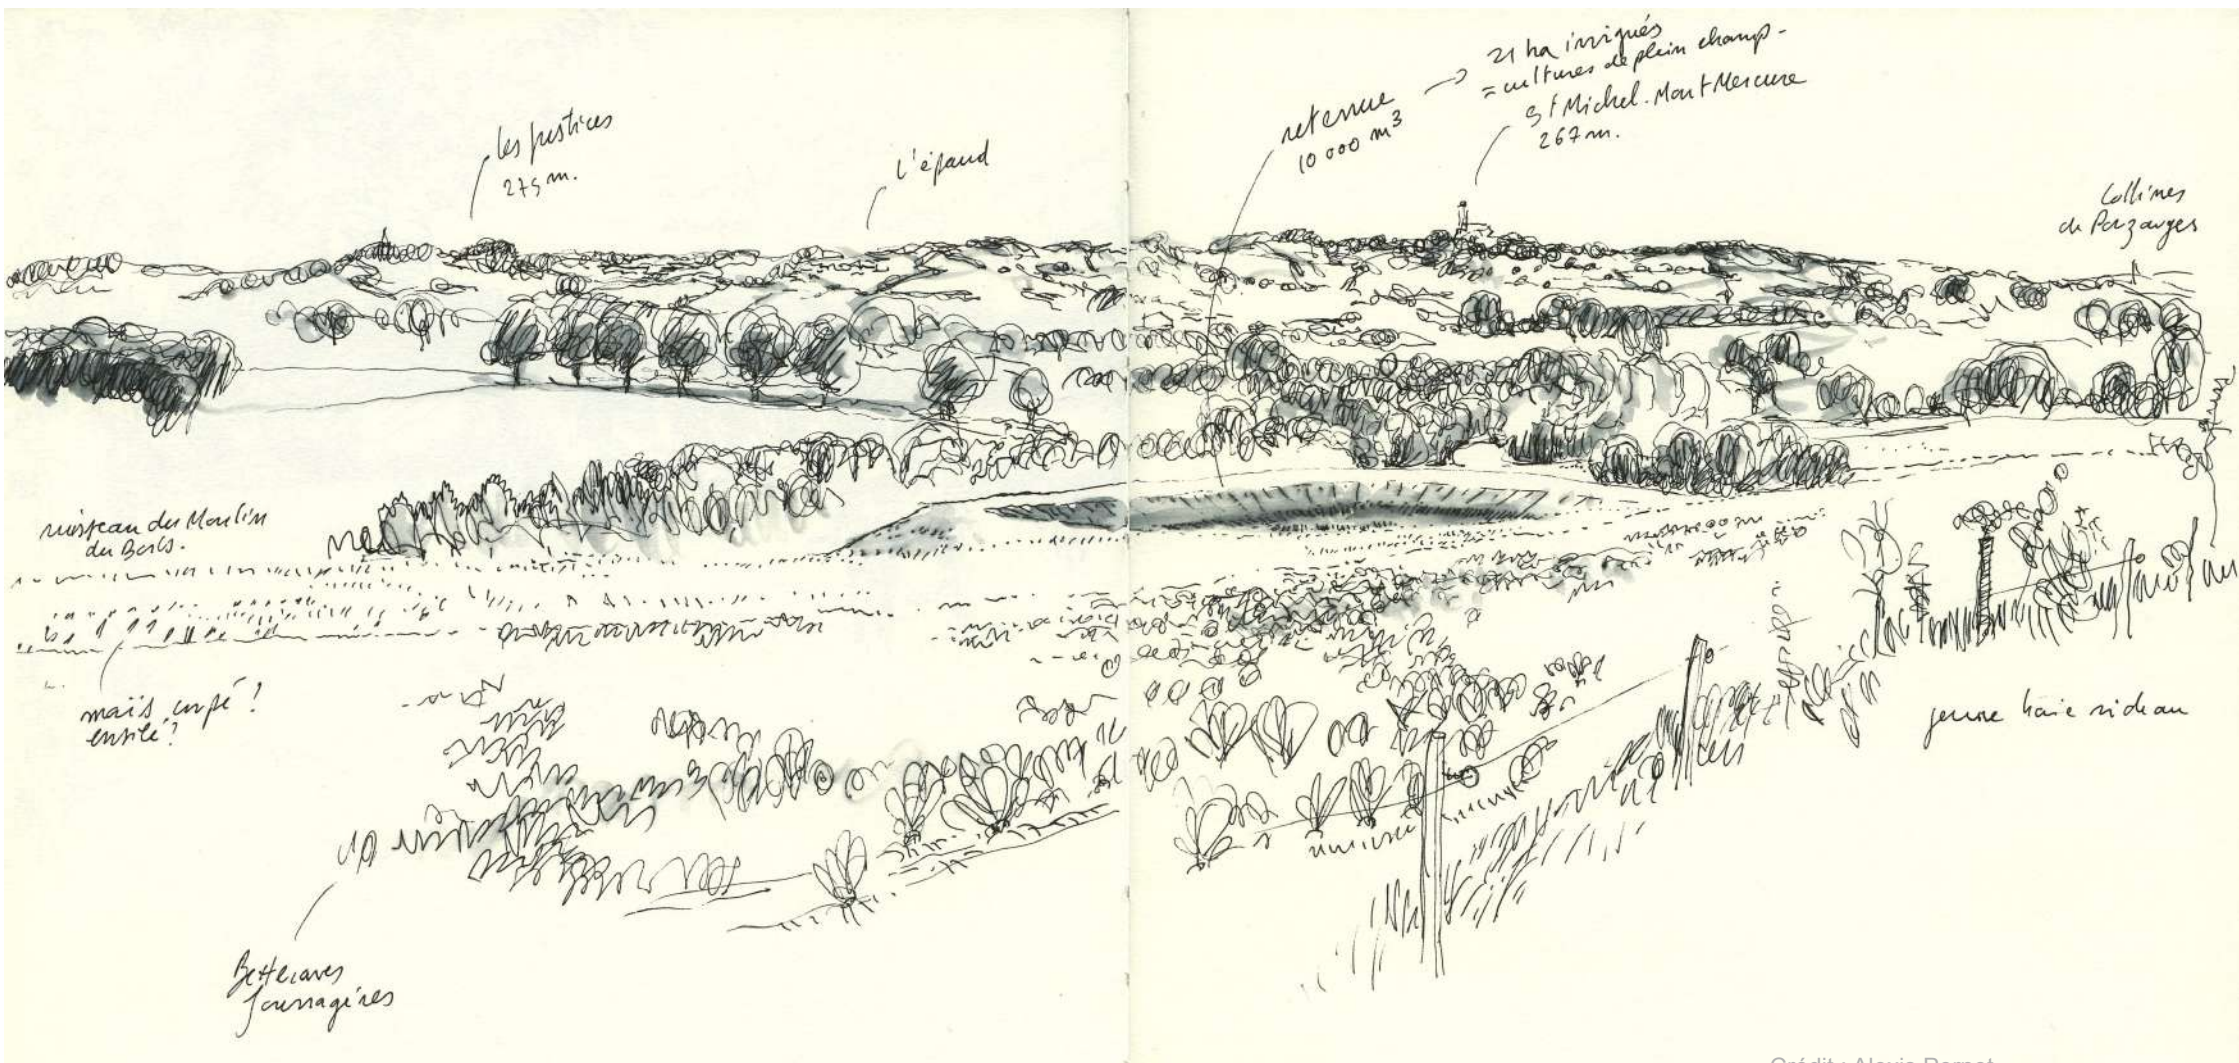 les justices
275 m.
l'épaud
retenue
10 000 m³
21 ha irrigués
= cultures de plein champ -
St Michel. Mont Mercure
267 m.
Collines
de Pouzauges
ruisseau du Moulin
du Bois.
maïs coupé !
ensilé ?
jeune haie rideau
Betteraves
fourragères
Crédit : Alexis Pernet